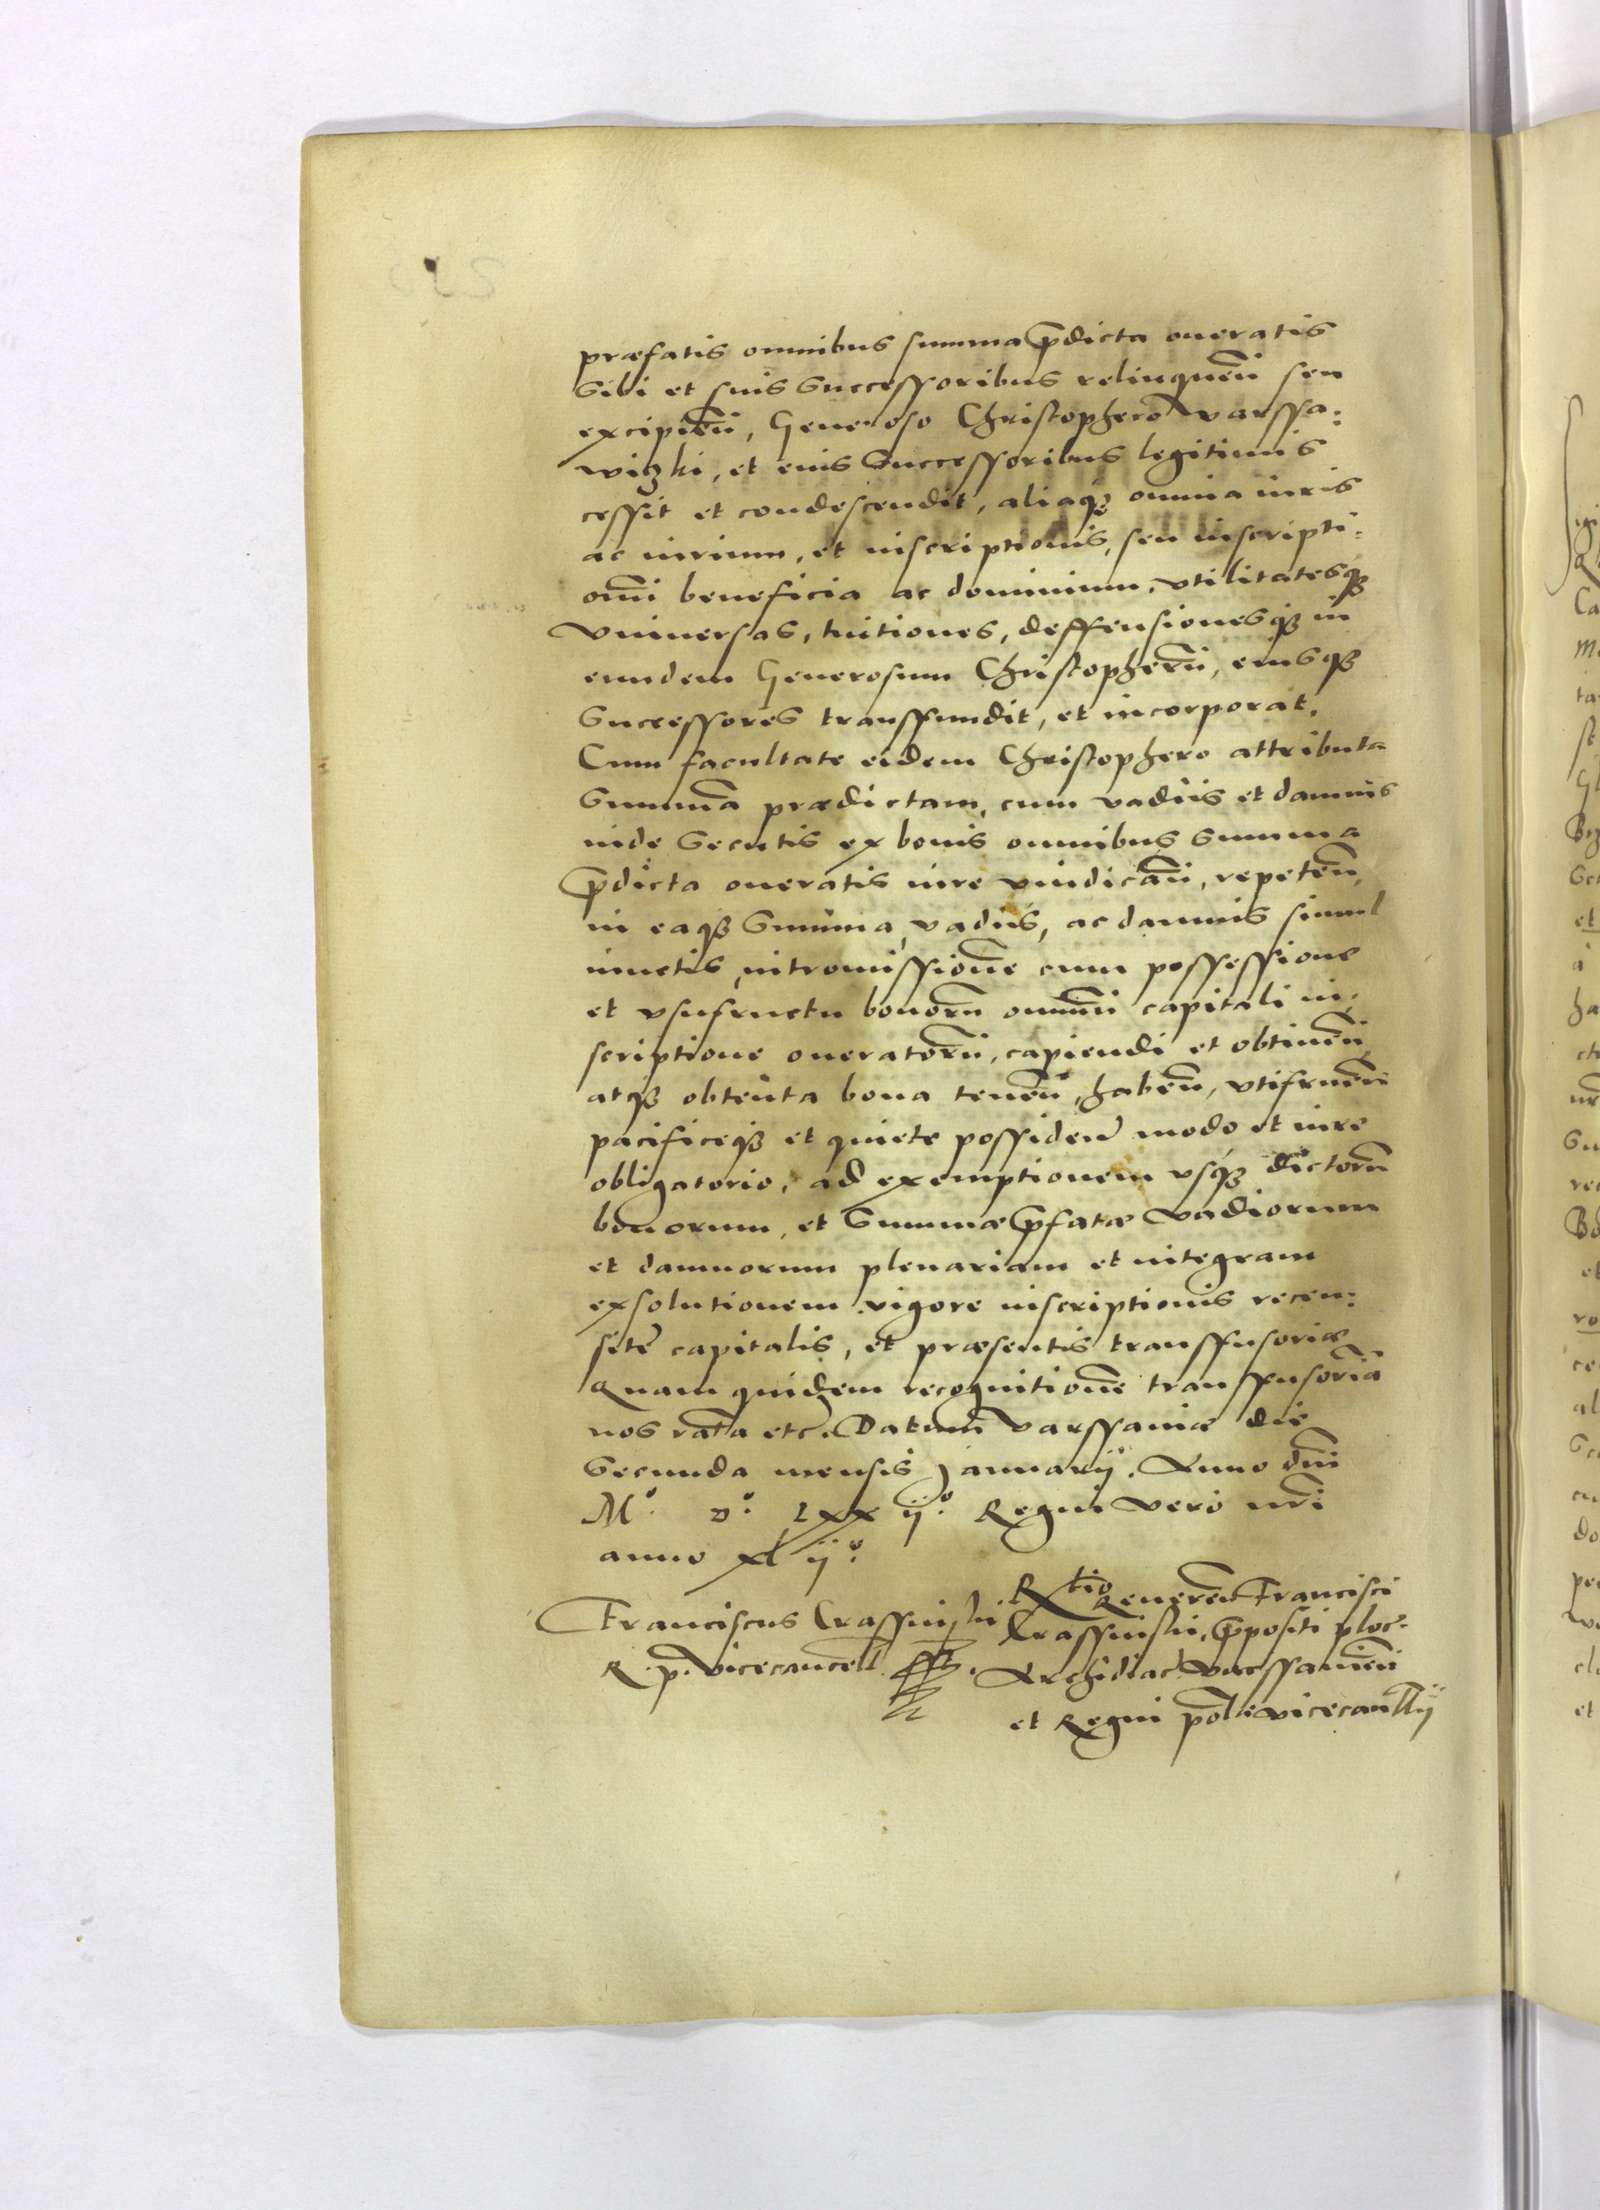 præfatis omnibus summa p̄dicta oneratis
Sibi et suis Successoribus relinquen̄ seu
excipien̄, Generoso Christophero Varssa:
viczki, et eius Successoribus legitimis
cessit et condescendit, aliaq3 omnia iuris
ac iurium, et inscriptionis, seu inscripti:
onū beneficia ac dominium, vtilitatesq3
Vniuersas, tuitiones, deffensionesq3 in
eundem Generosum Christopherū, eiusq3
Successores transfundit, et incorporat.
Cum facultate eidem Christophero attributa
Summā prædictam, cum vadiis et damnis
inde Secutis ex bonis omnibus Summa
p̄dicta oneratis iure vindicān, repeten̄,
in eaq3 Summa, vadiis, ac damnis simul
iunctis, intromissionē cum possessione
et vsufructu bonorū omniū capitali in:
scriptione oneratorū, capiendi et obtinen̄,
atq3 obtenta bona tenen̄, haben̄, vtifruen̄
pacificeq3 et quiete possiden̄ modo et iure
obligatorio, ad exemptionem vsq3 dictorū
bonorum, et Summæ p̄fatæ vadiorum
et damnorum plenariam et integram
exsolutionem vigore inscriptionis recen:
site capitalis, et præsentis transfusoriæ
Quam quidem recognitionē transfusoriā
nos ratā etc. Datum Varssaviæ die
Secunda mensis Januarij. Anno dn̄i
M° D° Lxx ij° Regni vero nr̄i
anno xl ij°
Franciscus Crassinski
R. p. Vicecancell.
R̄tio Reueren̄ Francisci
Crassinski, p̄positi ploc.
Archidiac Varssavien̄
et Regni pol. vicecancllij